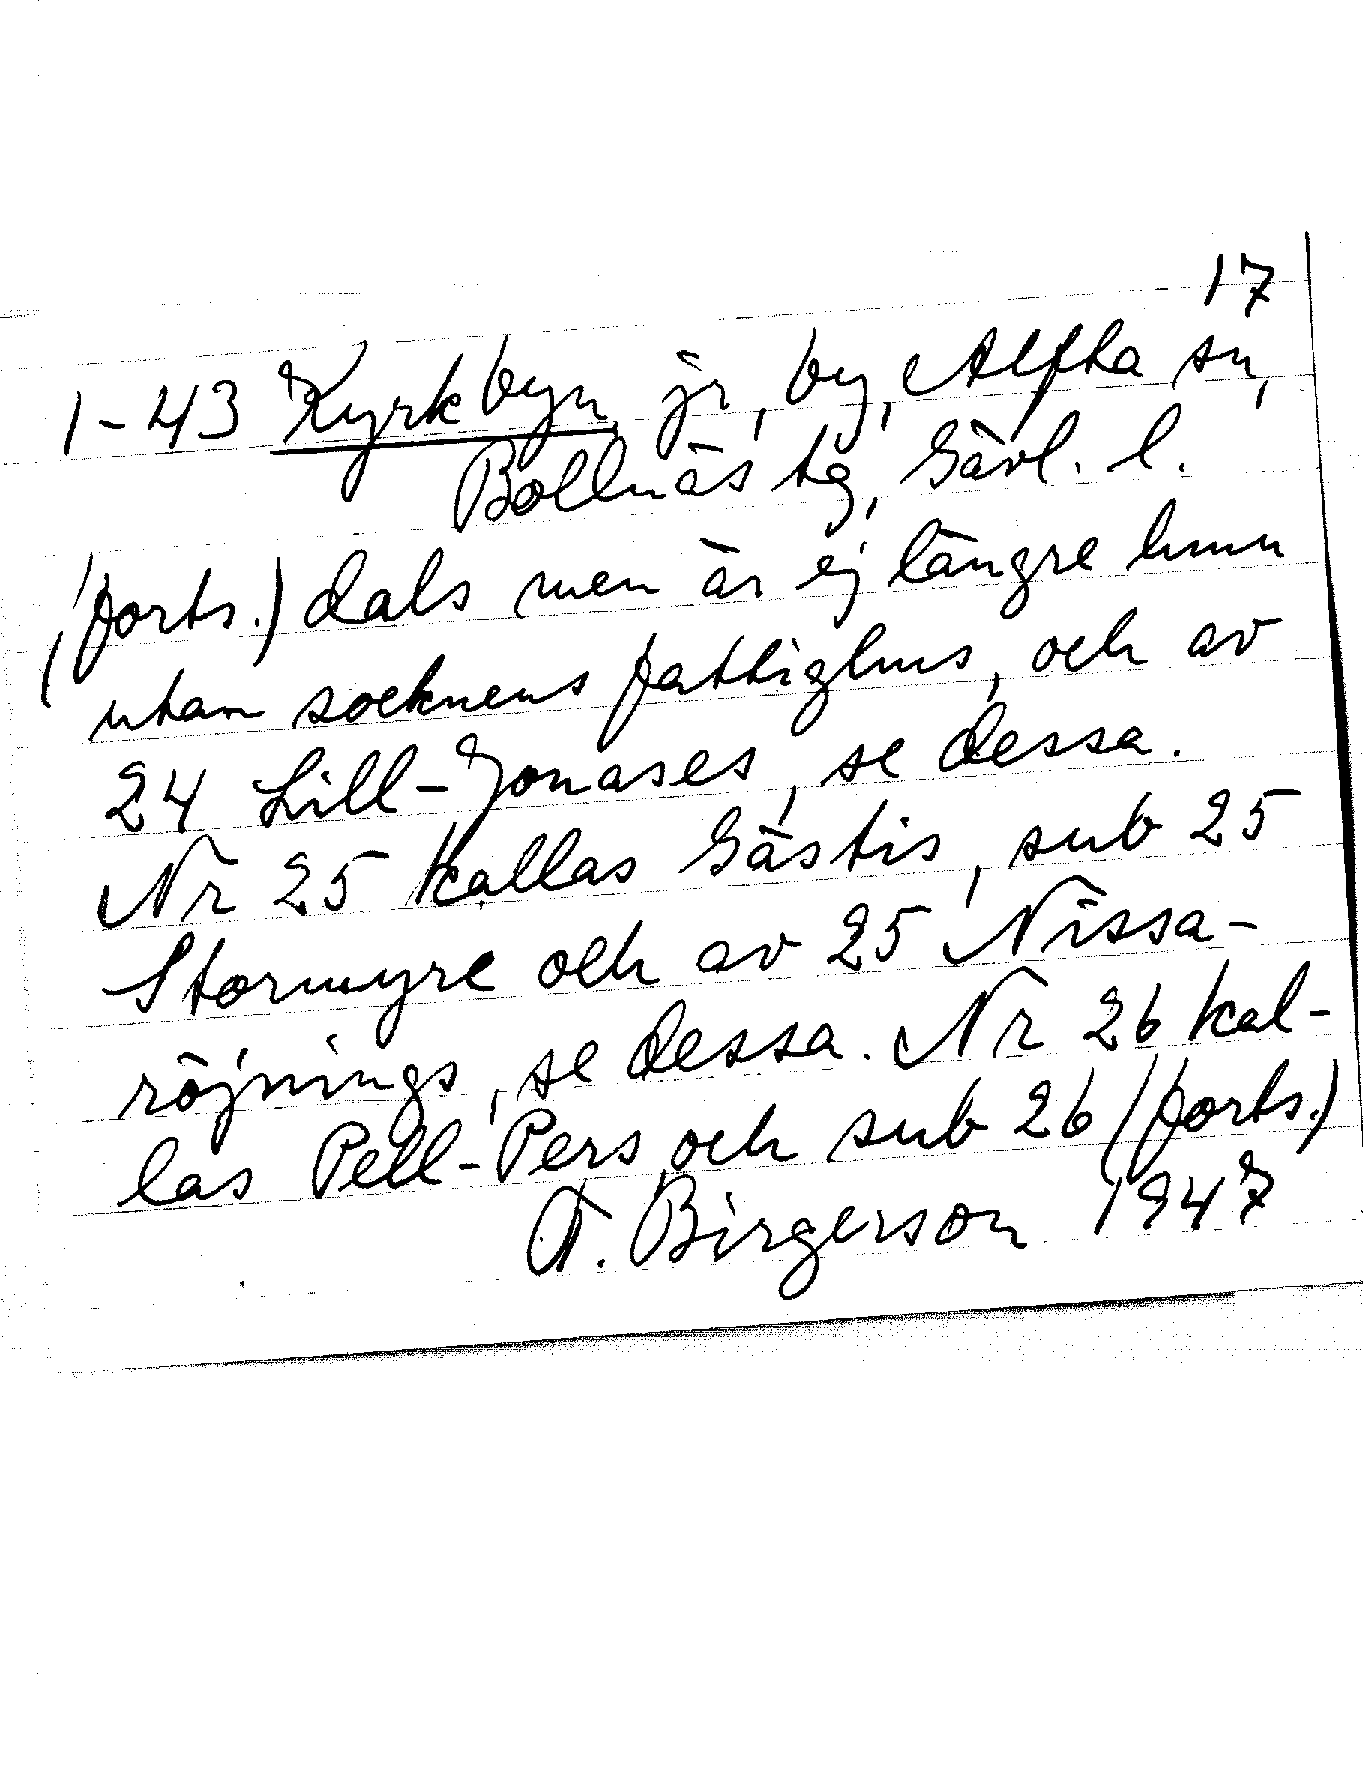 17
1-43 Kyrkbyn, jr, by, Alfta sn,
Bollnäs tg, Gävl. l.
(forts.) dals men är ej längre hmn
utan socknens fattighus, och av
24 Lill-Jonases, se dessa.
Nr 25 kallas Gästis, sub 25
Stormyre och av 25 Nissa-
röjnings, se dessa. Nr 26 kal-
las Pell-Pers och sub 26 (forts.)
F. Birgerson 1947